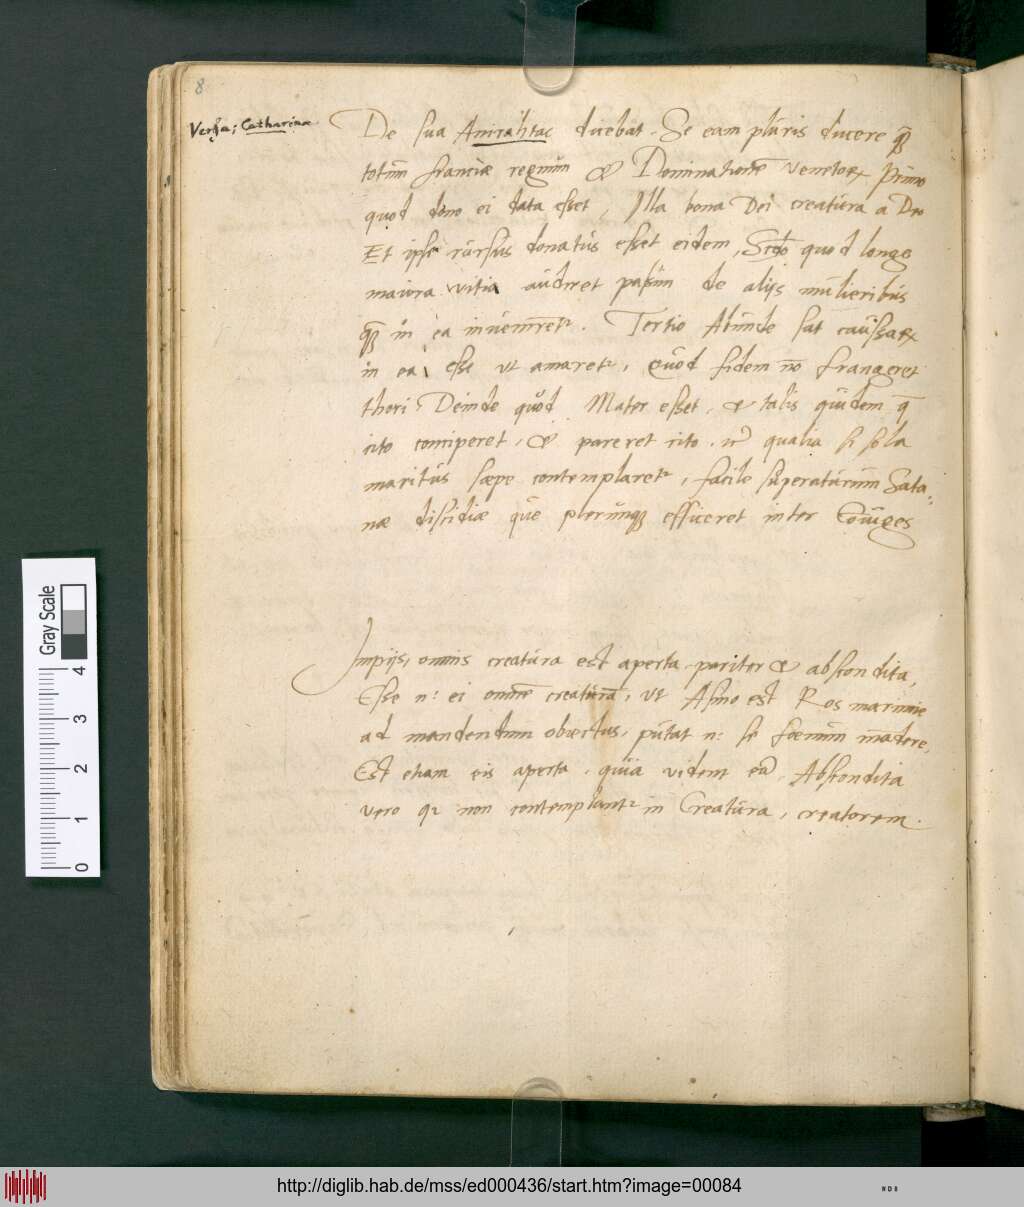 8
Catharinæ
De sua Anirahtac dicebat. Se eam pluris ducere qȝ
totum franciæ regnum & Dominationē venetorꝝ Primo
quod dono ei data esset, Illa bona Dei creatura a Deo
Et ipse rursus donatus esset eidem, Scdo quod longe
maiora vitia audiret passim de alijs mulieribus
qȝ in ea inueniret᷑. Tertio Abunde sat caussarꝝ
in ea esse vt amaret᷑, Quod fidem nō frangeret
thori. Deinde quod Mater esset, & talis quidem q̄
cito conciperet, & pareret cito. qualia si sola
maritus sæpe contemplaret᷑, facile superaturum Sata-
næ discidiæ que plerunqȝ efficeret inter Coiuges
Impijs, omnis creatura est aperta pariter & abscondita,
Esse n: ei omnē creaturā, vt Asino est Ros marinus
ad mandendum obiectus, putat n: se foenum mādere,
Est etiam eis aperta, quia vident eā, Abscondita
vero qꝛ non contemplant᷑ in Creatura, creatorem.
Gray Scale
0 1 2 3 4
http://diglib.hab.de/mss/ed000436/start.htm?image=00084